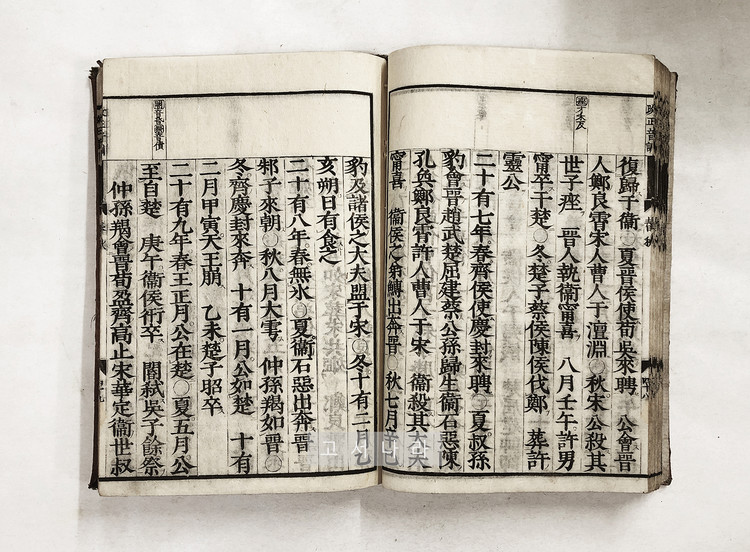 改正音訓
春秋
復歸于衞 ○夏晉侯使荀吳來聘 公會晉
人鄭良霄宋人曹人于澶淵 ○秋宋公殺其
世子痤 晉人執衞甯喜 八月壬午許男
甯卒于楚 ○冬楚子蔡侯陳侯伐鄭 葬許
靈公
二十有七年春齊侯使慶封來聘 ○夏叔孫
豹會晉趙武楚屈建蔡公孫歸生衞石惡陳
孔奐鄭良霄許人曹人于宋 衞殺其大夫
甯喜 衞侯之弟鱄出奔晉 秋七月辛巳
豹及諸侯之大夫盟于宋 ○冬十有二月乙
亥朔日有食之
二十有八年春無冰 ○夏衞石惡出奔晉
邾子來朝 ○秋八月大雩 仲孫羯如晉 ○
冬齊慶封來奔 十有一月公如楚 十有
二月甲寅天王崩 乙未楚子昭卒
二十有九年春王正月公在楚 ○夏五月公
至自楚 庚午衞侯衎卒 閽弑吳子餘祭
仲孫羯會晉荀盈齊高止宋華定衞世叔